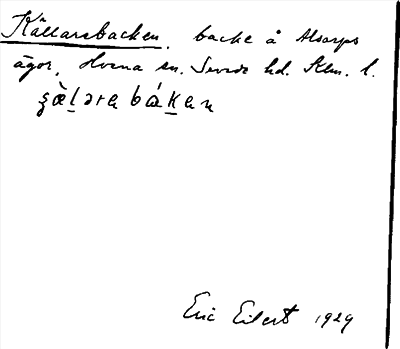 Källarsbacken. backe å Alsarps
ägor, Hvena sn. Sevede hd. Klm. l.
ʂæ̀l̠əra bák̠en
Eric Eilert 1929